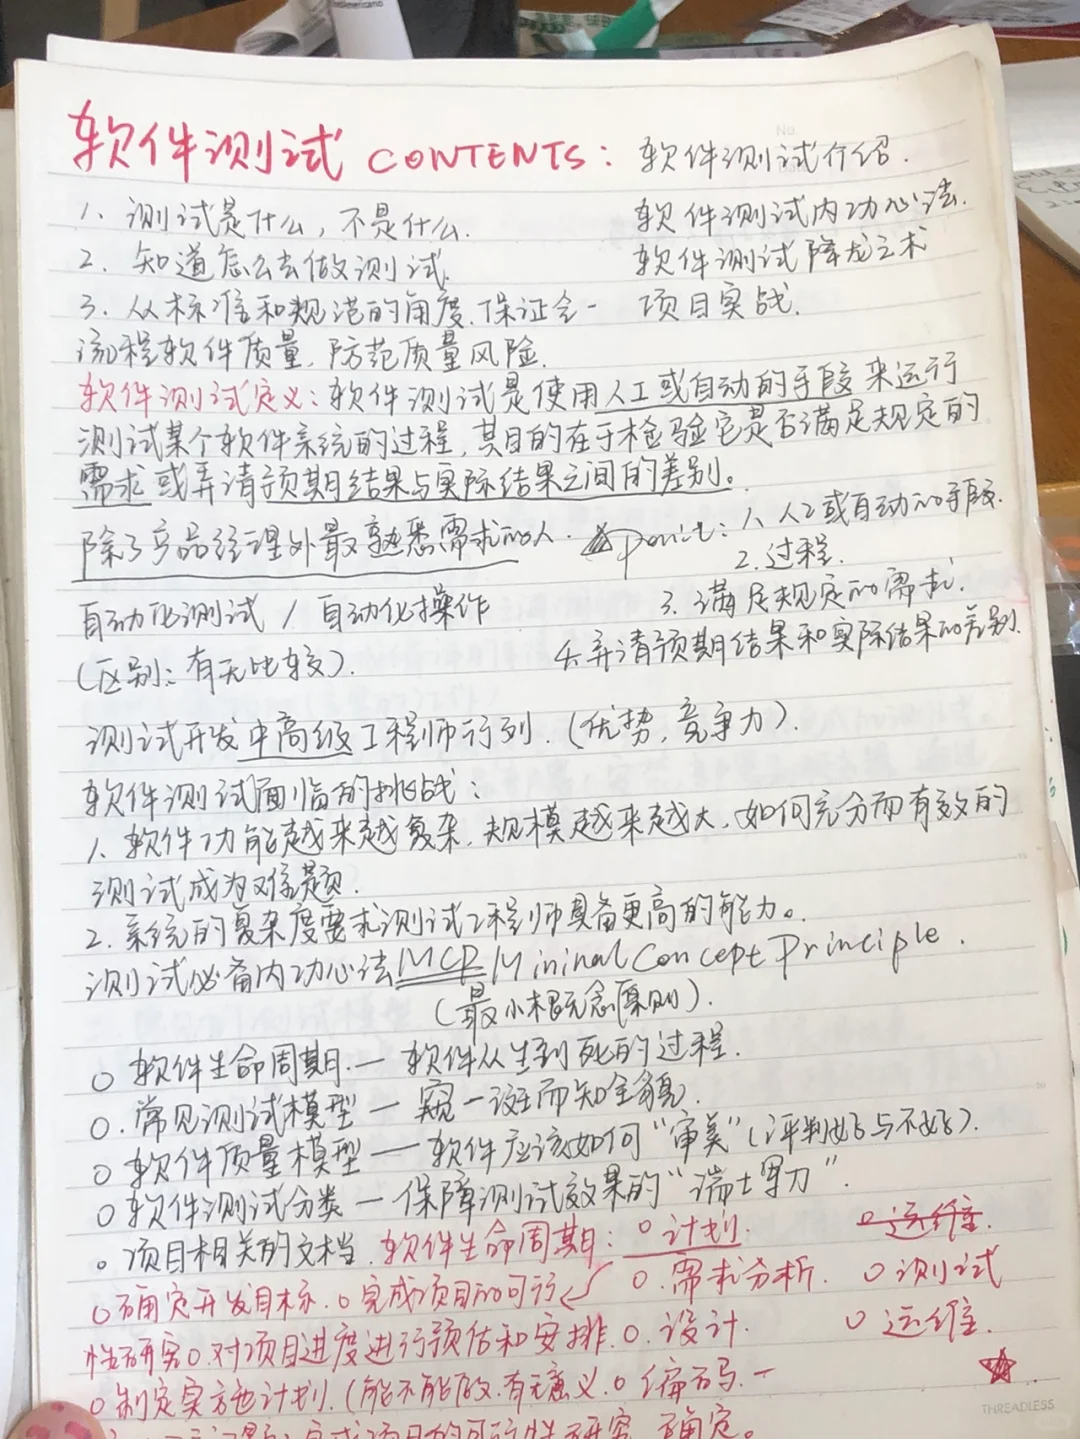 软件测试 CONTENTS: 软件测试介绍.
1、测试是什么,不是什么. 软件测试内功心法.
2、知道怎么去做测试. 软件测试降龙之术
3、从标准和规范的角度.保证全一 项目实战.
流程软件质量,防范质量风险.
软件测试定义:软件测试是使用人工或自动的手段来运行
测试某个软件系统的过程,其目的在于检验它是否满足规定的
需求或弄清预期结果与实际结果之间的差别。
除了产品经理外最熟悉需求的人. ☆Point: 1、人工或自动的手段.
2.过程.
自动化测试 / 自动化操作 3.满足规定的需求.
(区别:有无比较). 4.弄清预期结果和实际结果的差别.
测试开发中高级工程师行列.(优势,竞争力).
软件测试面临的挑战:
1、软件功能越来越复杂,规模越来越大,如何充分而有效的
测试成为难题.
2.系统的复杂度要求测试工程师具备更高的能力。
测试必备内功心法MCP Mininal Concept Principle.
(最小概念原则).
○ 软件生命周期.一 软件从生到死的过程.
○.常见测试模型一窥一斑而知全貌.
○ 软件质量模型一软件应该如何“审美”(评判好与不好).
○ 软件测试分类一保障测试效果的“瑞士军刀”.
○ 项目相关的文档. 软件生命周期: ○ 计划. ○ 运维.
○确定开发目标.○完成项目的可行 ○.需求分析. ○ 测试
性研究○.对项目进度进行预估和安排.○.设计. ○ 运维.
○制定实施计划.(能不能做.有无意义.○编码.一
完成项目的可行性研究 确定。
THREADLESS
No.